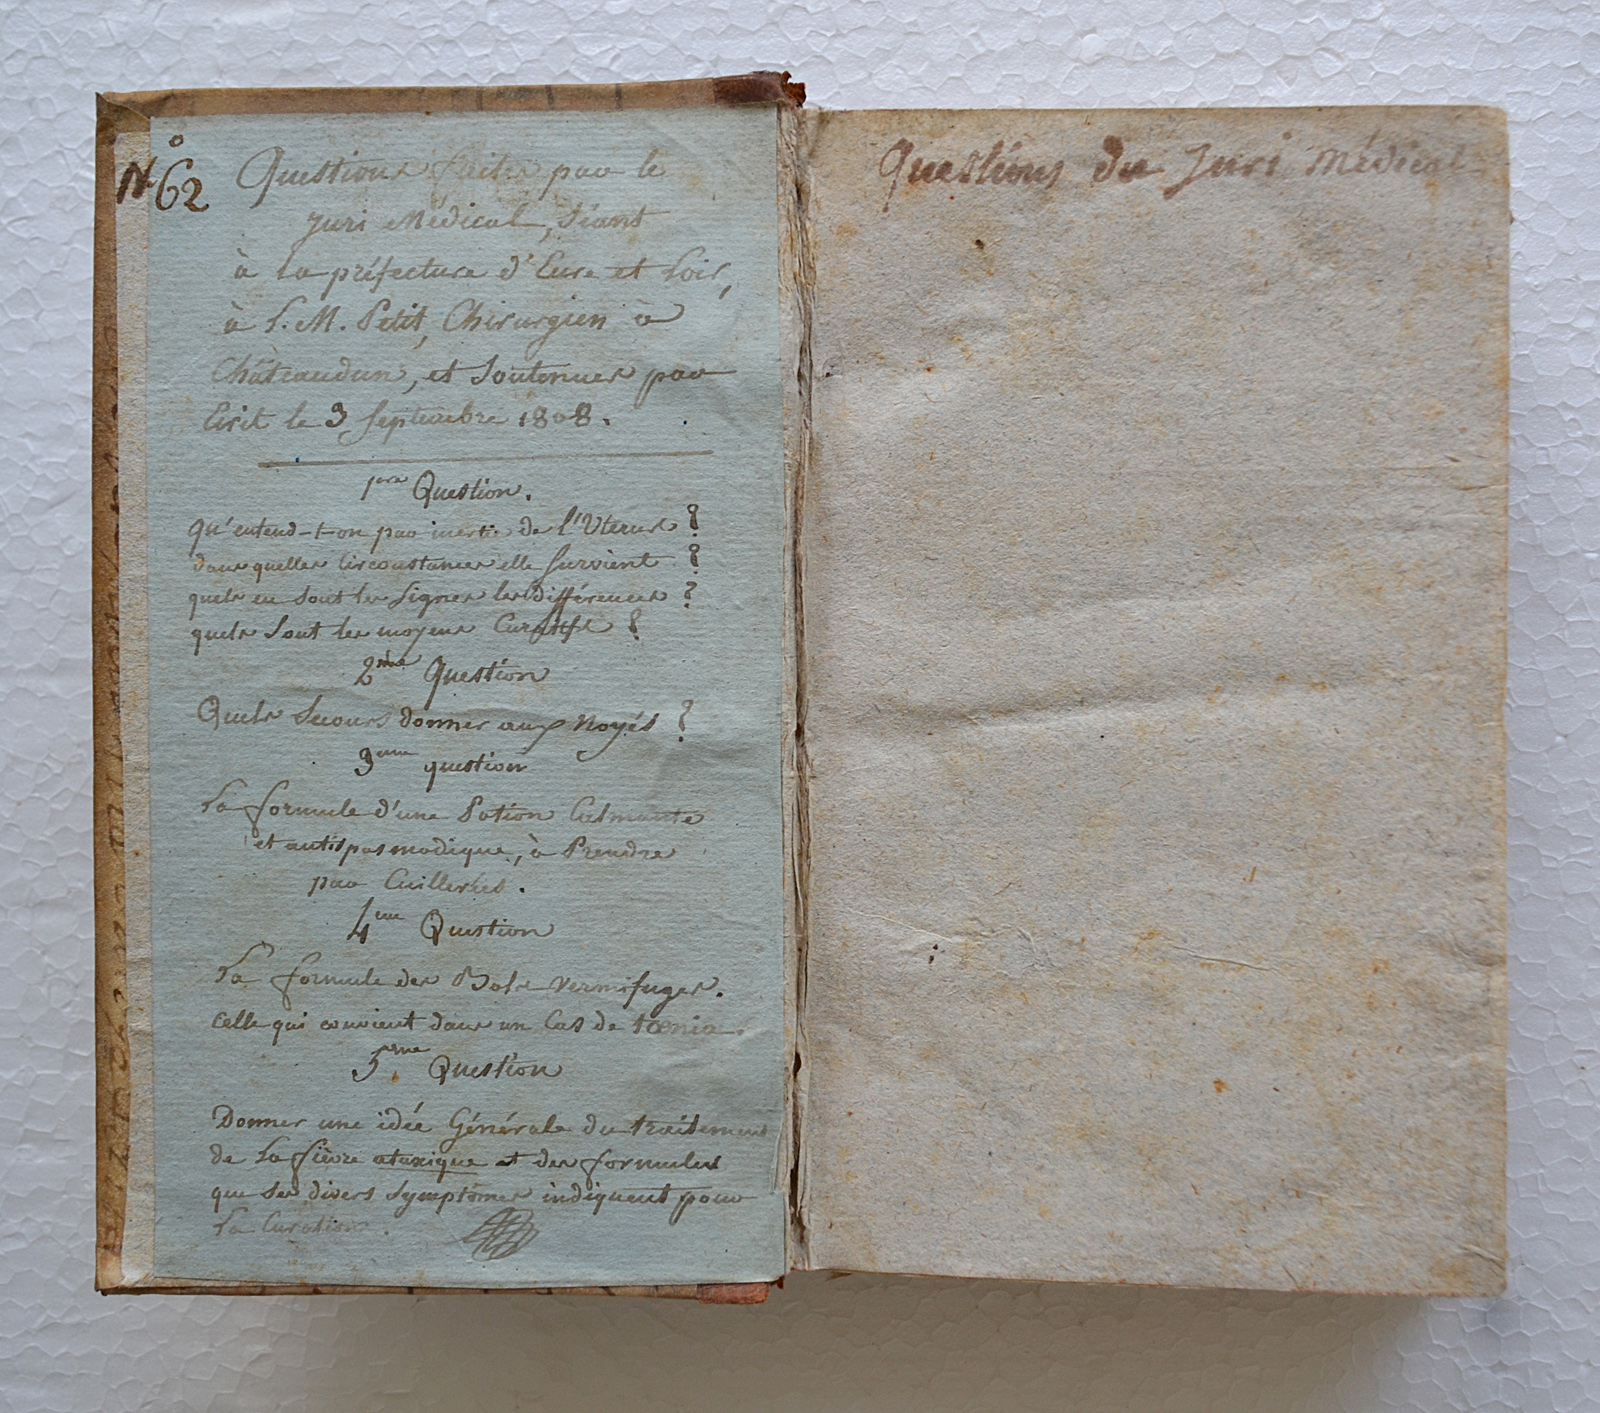 N° 62
Questions faites par le
Juri Médical, Séant
à La préfecture d'Eure et Loir,
à L. M. Petit, Chirurgien à
Châteaudun, et Soutenues par
Ecrit le 3 Septembre 1808.
1ere Question.
qu'entend-t-on par inertie de l'Uterus ?
dans quelles Circonstances elle Survient ?
quels en sont les Signes les différences ?
quels Sont les moyens Curatifs ?
2eme Question
Quels Secours donner aux Noyés ?
3eme question
La formule d'une Potion Calmante
et antispasmodique, à Prendre
par Cuillerées.
4eme Question
La formule des Bols vermifuges.
celle qui convient dans un Cas de tœnia.
5eme Question
Donner une idée Générale du traitement
de La fièvre ataxique et des formules
que ses divers Symptômes indiquent pour
La Curation.
Questions du Juri Médical